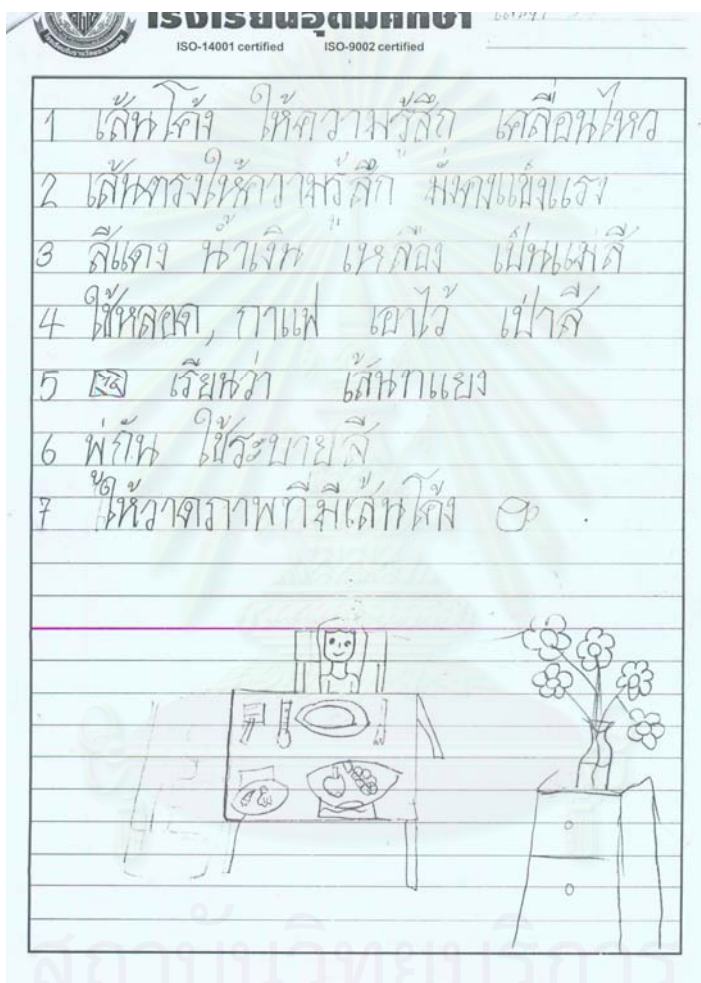 โรงเรียนอุดมศึกษา
ISO-14001 certified ISO-9002 certified
1 เส้นโค้ง ให้ความรู้สึก เคลื่อนไหว
2 เส้นตรงให้ความรู้สึก มั่งคงแข็งแรง
3 สีแดง น้ำเงิน เหลือง เป็นแม่สี
4 ใช้หลอด, กาแฟ เอาไว้ เป่าสี
5 เรียนว่า เส้นทแยง
6 พู่กัน ใช้ระบายสี
7 ให้วาดภาพที่มีเส้นโค้ง
สถาบันวิทยบริการ